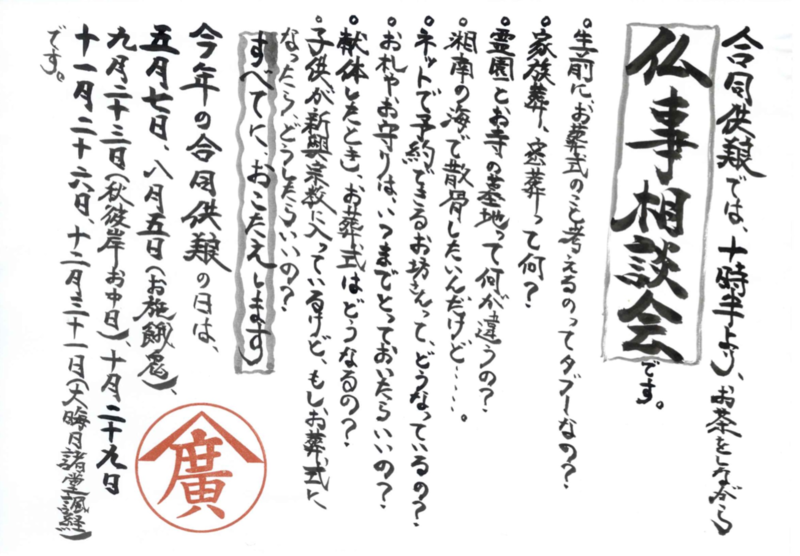 合同供養では、十時半より、お茶をしながら
仏事相談会です。
。生前にお葬式のこと考えるのってタブーなの？
。家族葬、密葬って何？
。霊園とお寺の墓地って何が違うの？
。湘南の海で散骨したいんだけど……。
。ネットで予約できるお坊さんって、どうなっているの？
。お札やお守りは、いつまでとっておいたらいいの？
。献体したとき、お葬式はどうなるの？
。子供が新興宗教に入っているけど、もしお葬式に
なったら、どうしたらいいの？
すべてに、おこたえします
今年の合同供養の日は、
五月七日、八月五日（お施餓鬼）、
九月二十三日（秋彼岸お中日）、十月二十九日
十一月二十六日、十二月三十一日（大晦日諸堂諷経）
です。
廣